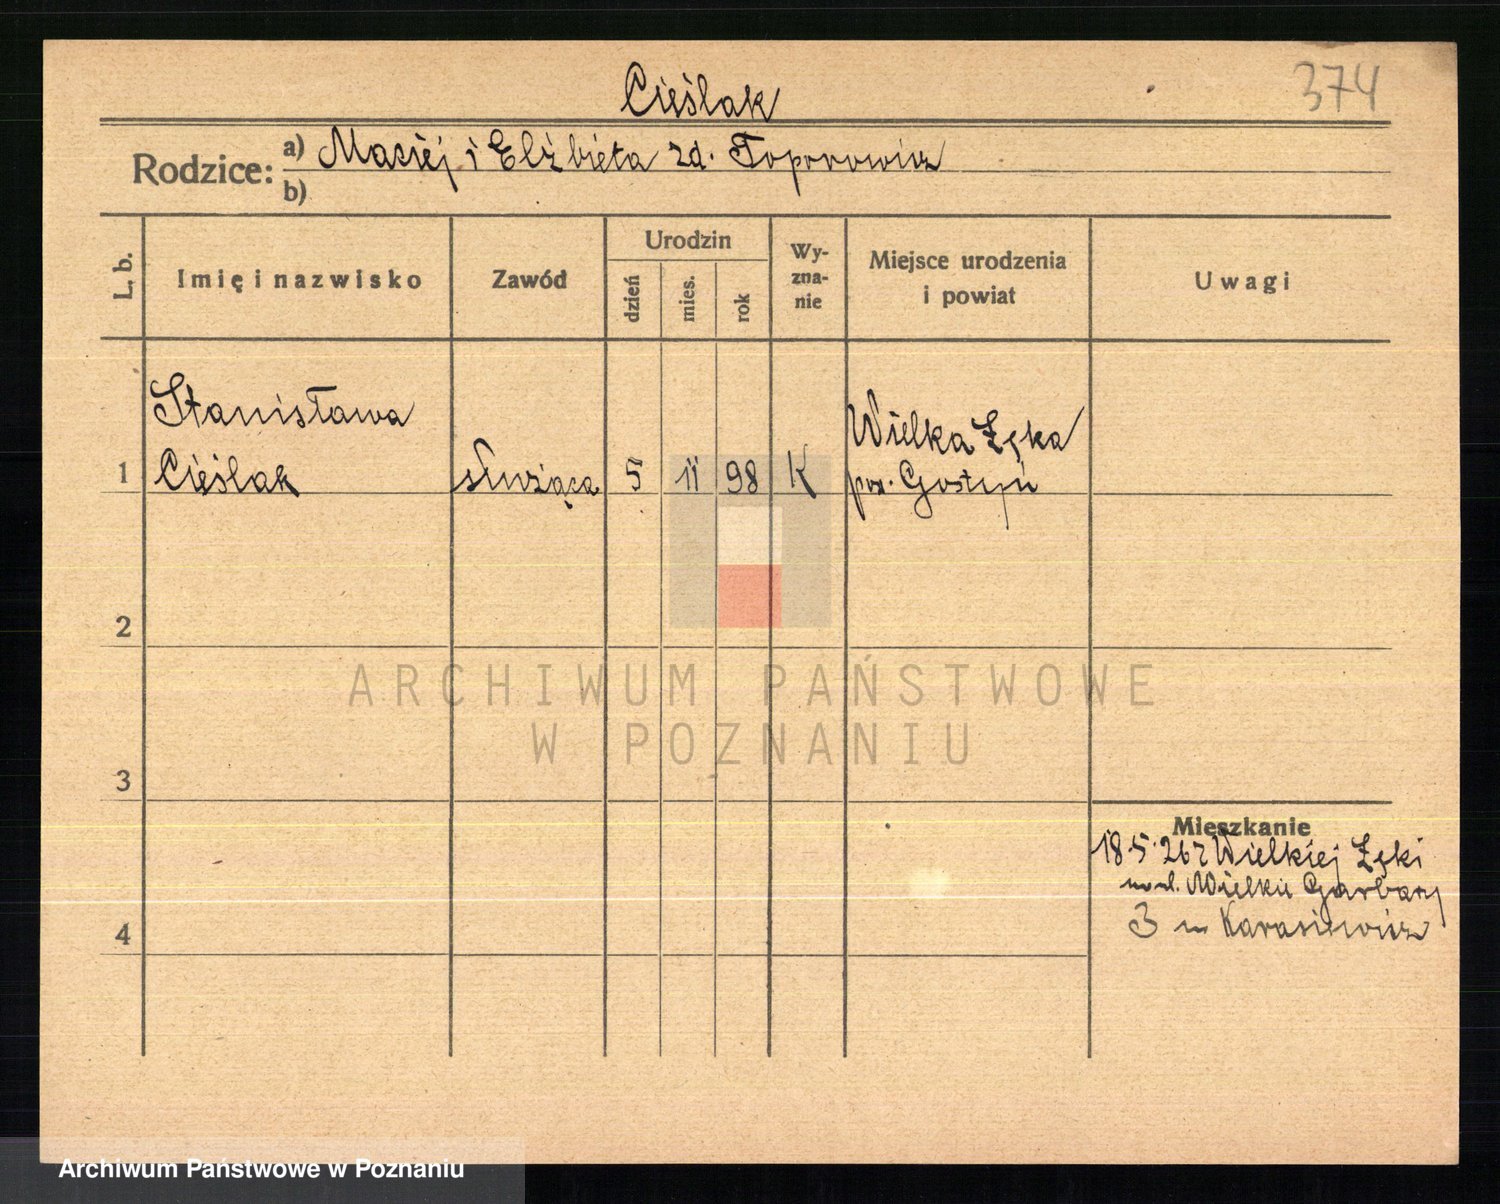 374
Cieślak
Rodzice: a) Maciej i Elżbieta zd. Toporowicz
b)
L. b.
Imię i nazwisko
Zawód
Urodzin
dzień
mies.
rok
Wy-
zna-
nie
Miejsce urodzenia
i powiat
Uwagi
Stanisława
Wielka Łęka
1 Cieślak służąca 5 11 98 K pow. Gostyń
2
ARCHIWUM PAŃSTWOWE
W POZNANIU
3
Mieszkanie
18.5.26 z Wielkiej Łęki
Wielkie Garbary
4
3 m Karasiewicz
Archiwum Państwowe w Poznaniu